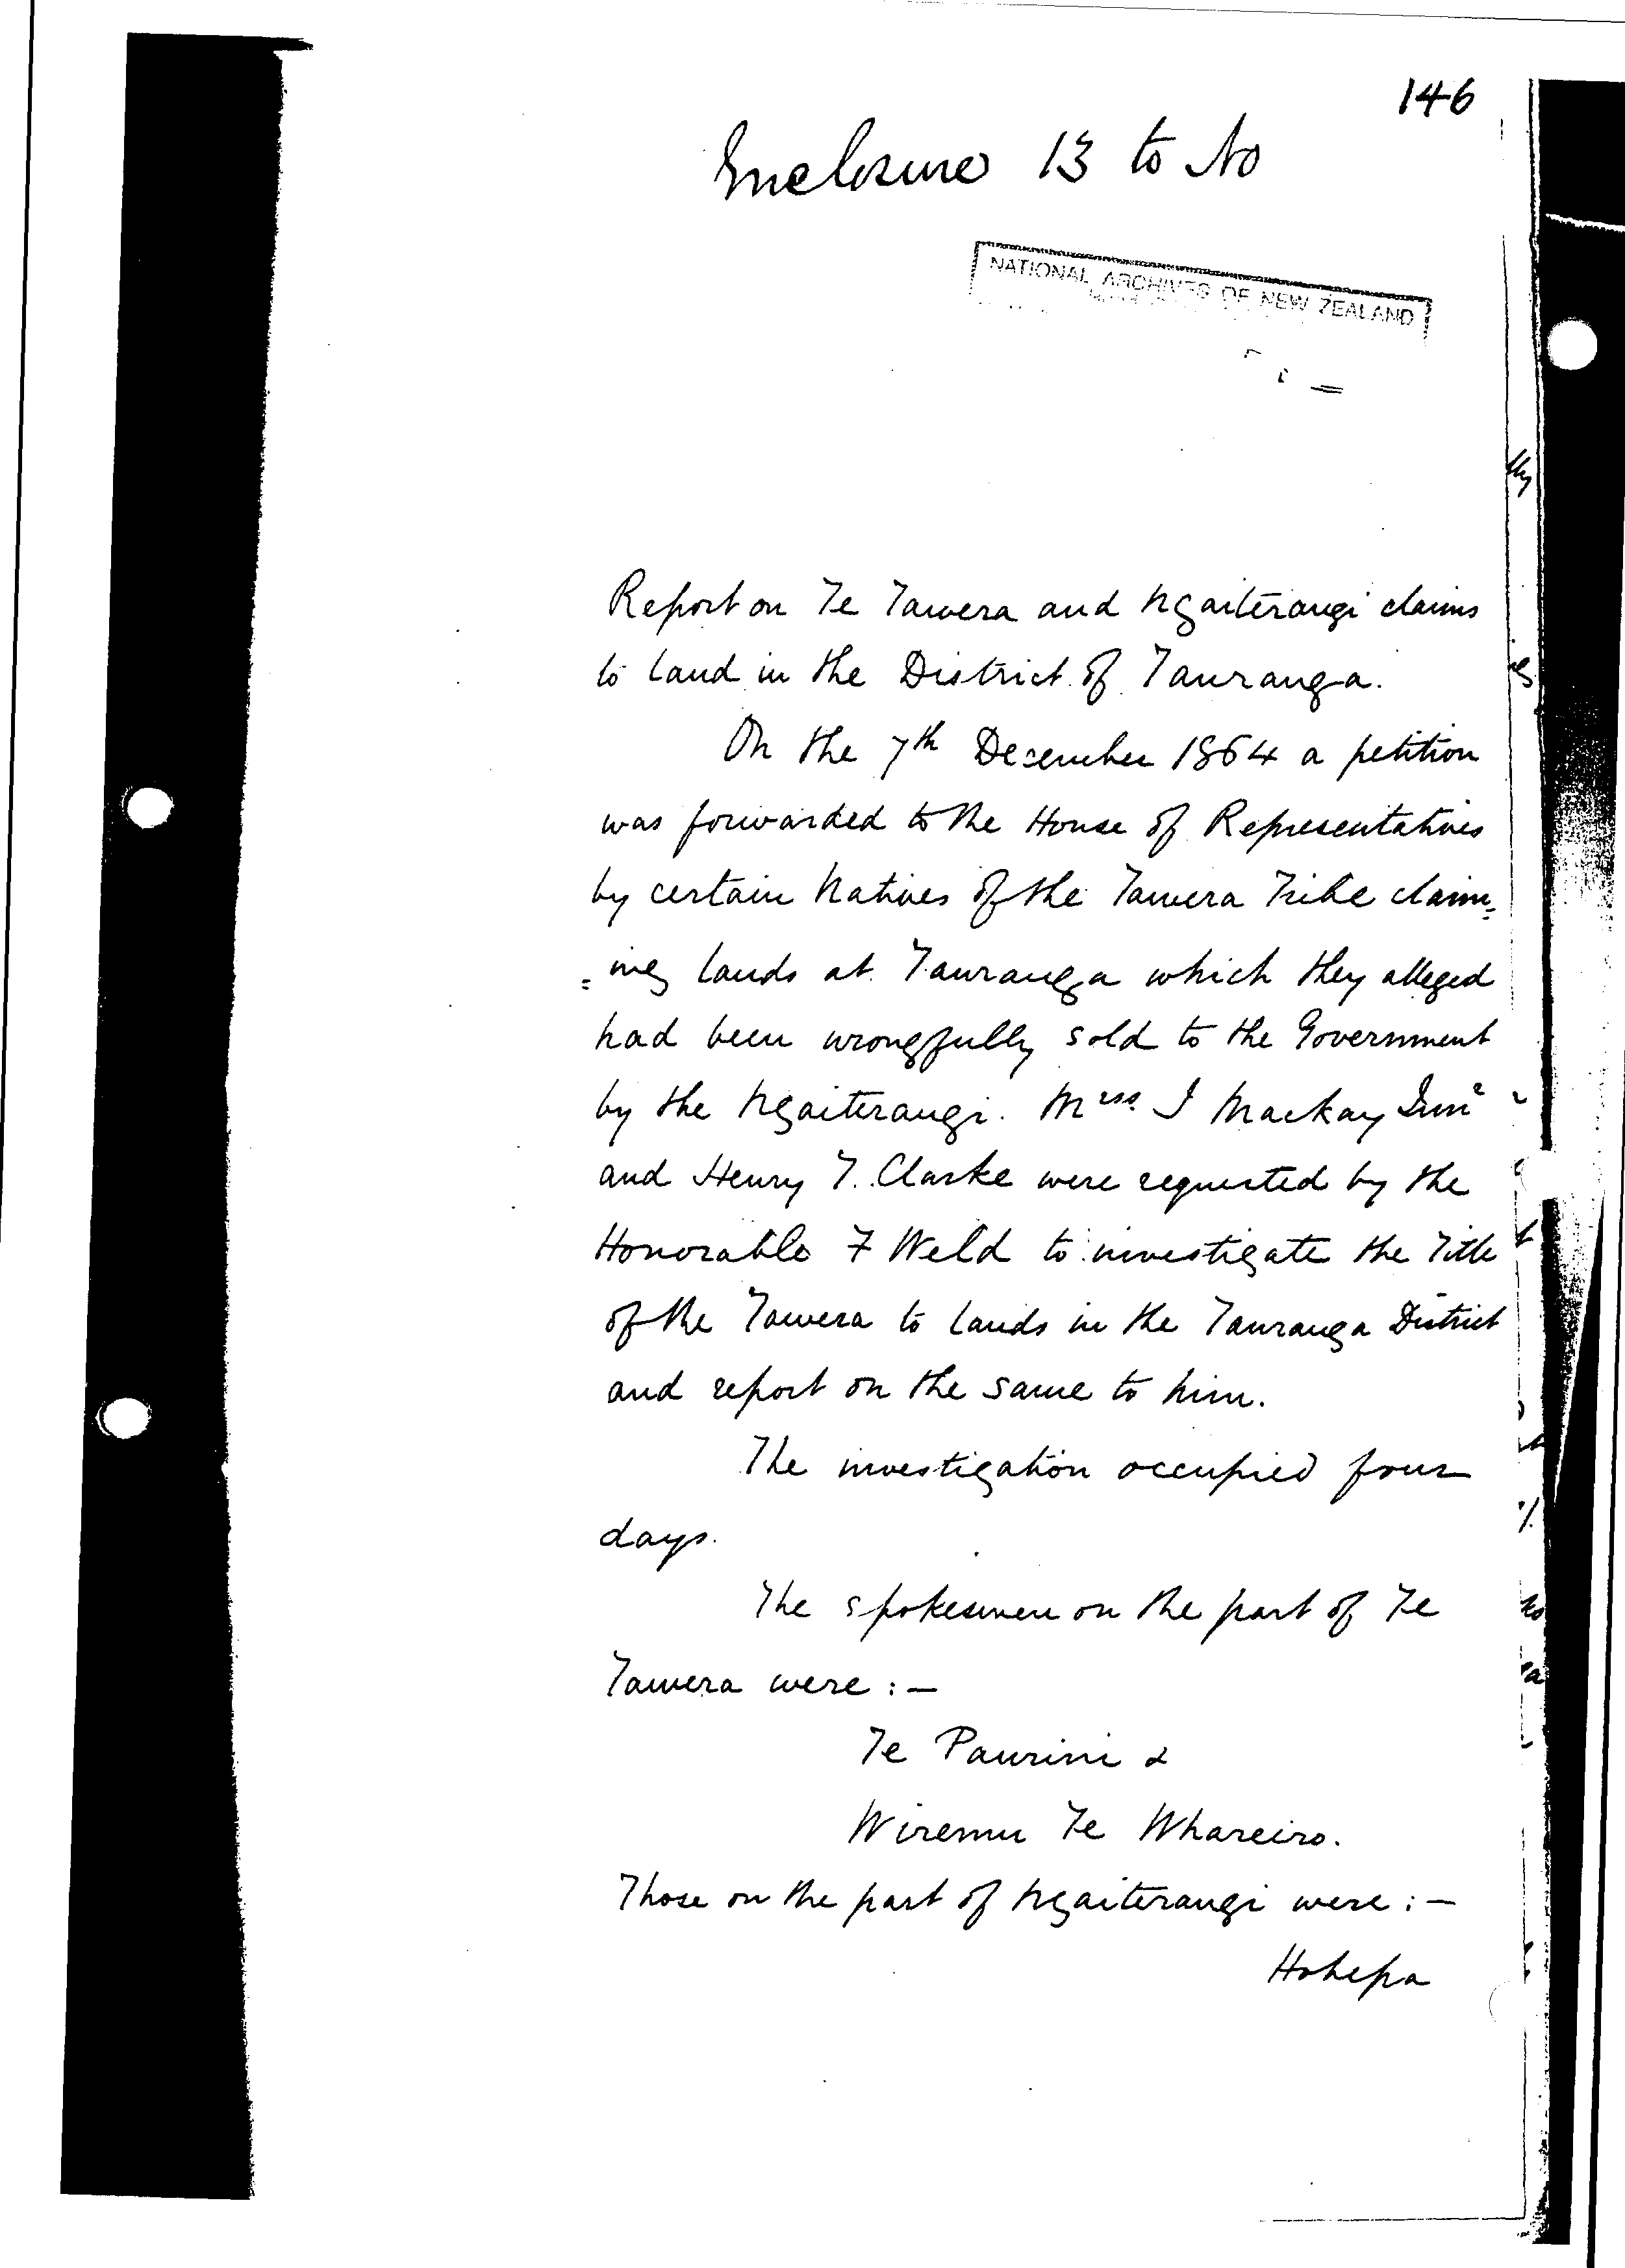 146
Enclosure 13 to No
NATIONAL ARCHIVES OF NEW ZEALAND
Report on Te Tawera and Ngaiterangi claims
to land in the District of Tauranga.
On the 7th December 1864 a petition
was forwarded to the House of Representatives
by certain Natives of the Tawera Tribe claim=
=ing lands at Tauranga which they alleged
had been wrongfully sold to the Government
by the Ngaiterangi. Mess. J Mackay Junr
and Henry T. Clarke were requested by the
Honorable F Weld to investigate the Title
of the Tawera to lands in the Tauranga District
and report on the same to him.
The investigation occupied four
days.
The spokesmen on the part of Te
Tawera were :—
Te Paurini &
Wiremu Te Whareiro.
Those on the part of Ngaiterangi were :—
Hohepa